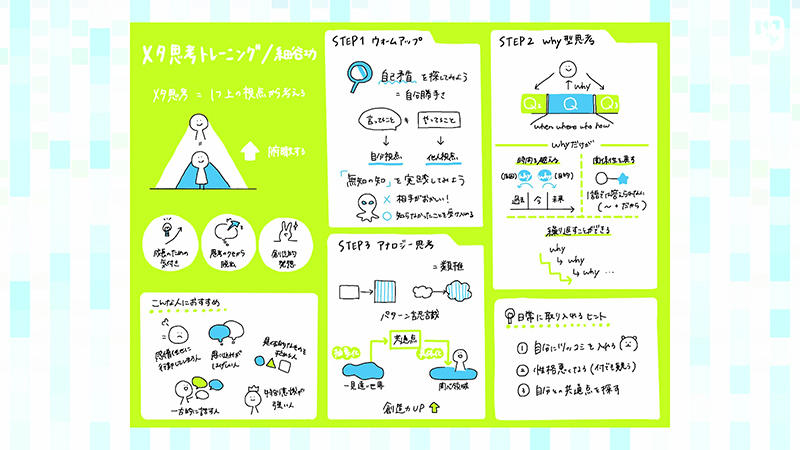 メタ思考トレーニング/細谷功
メタ思考 = 1つ上の視点から考える
俯瞰する
成長のための
気付き
思考のクセから
脱出
創造的
発想
こんな人におすすめ
感情任せに
行動してしまう人
思い込みが
はげしい人
一方的に話す人
特別意識が
強い人
STEP1 ウォームアップ
自己矛盾を探してみよう
= 自分勝手さ
言ってること
≠
やってること
自分視点
他人視点
「無知の知」を実践してみよう
× 相手がおかしい!
○ 知らなかったことを受け入れる
STEP2 Why型思考
↑Why
Q
Q
Q
when where who how
Whyだけが
時間を越える
(原因)
Why
Why
(目的)
過去
今
未来
関係性を表す
1語で答えられない
(〜+だから)
繰り返すことができる
Why
Why
Why ...
STEP3 アナロジー思考
= 類推
パターン認識
共通点
一見遠い世界
創造力UP
日常に取り入れるヒント
① 自分にツッコミを入れる
② 性格悪くなろう(何でも疑う)
③ 自分との共通点を探す